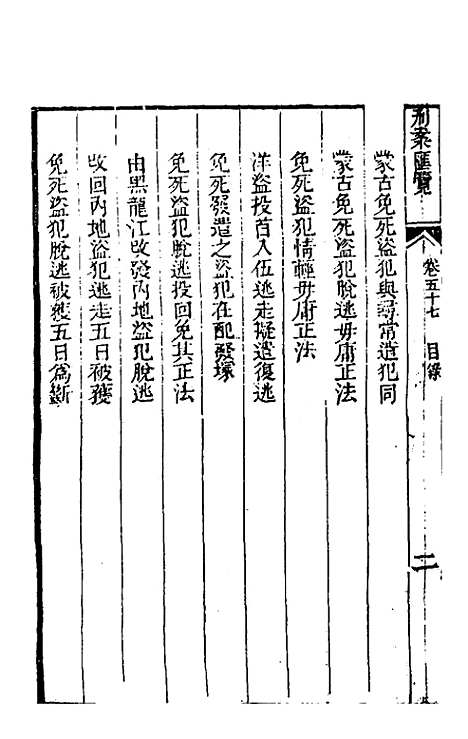 刑案匯覽
卷五十七
目錄
二
蒙古免死盜犯與尋常遣犯同
蒙古免死盜犯脫逃毋庸正法
免死盜犯情輕毋庸正法
洋盜投首入伍逃走擬遣復逃
免死發遣之盜犯在配發塚
免死盜犯脫逃投回免其正法
由黑龍江改發內地盜犯脫逃
改回內地盜犯逃走五日被獲
免死盜犯脫逃被獲五日為斷